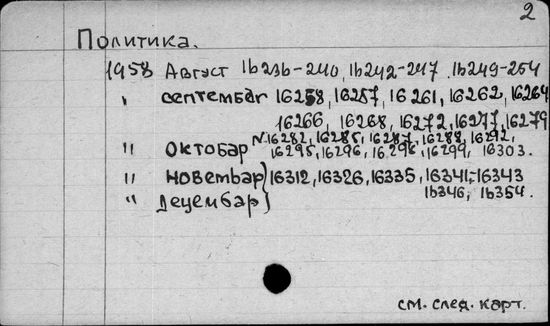 2
Политика.
1958 Август 16236-240, 16242-247. 16249-254
" септембаг 16258, 16257, 16261, 16262, 16264
16266, 16268, 16272, 16277, 16279
" октобар N.16282, 16285, 16287, 16288, 16292,
16295, 16296, 16298, 16299, 16303.
" новембар } 16312, 16326, 16335, 16341,-16343
" децембар } 16346, 16354.
см. след. карт.